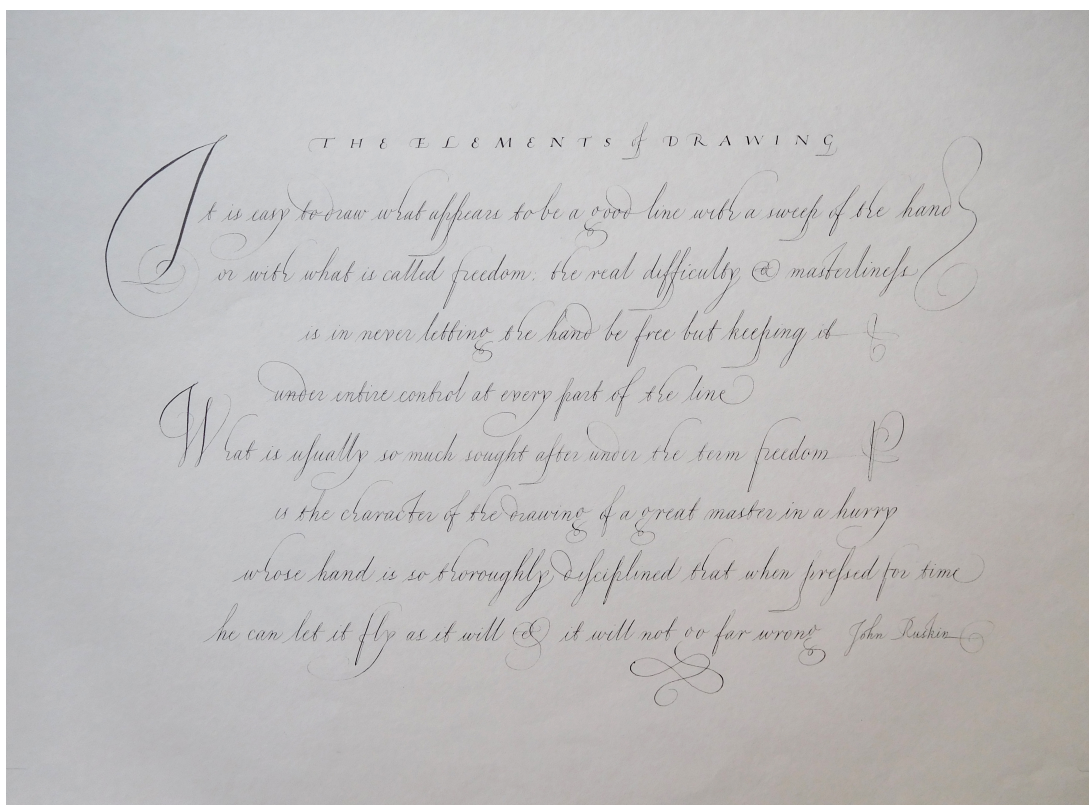 THE ELEMENTS of DRAWING
It is easy to draw what appears to be a good line with a sweep of the hand
or with what is called freedom: the real difficulty & masterlineſs
is in never letting the hand be free but keeping it
under entire control at every part of the line
What is uſually so much sought after under the term freedom
is the character of the drawing of a great master in a hurry
whose hand is so thoroughly diſciplined that when preſsed for time
he can let it fly as it will & it will not go far wrong John Ruskin